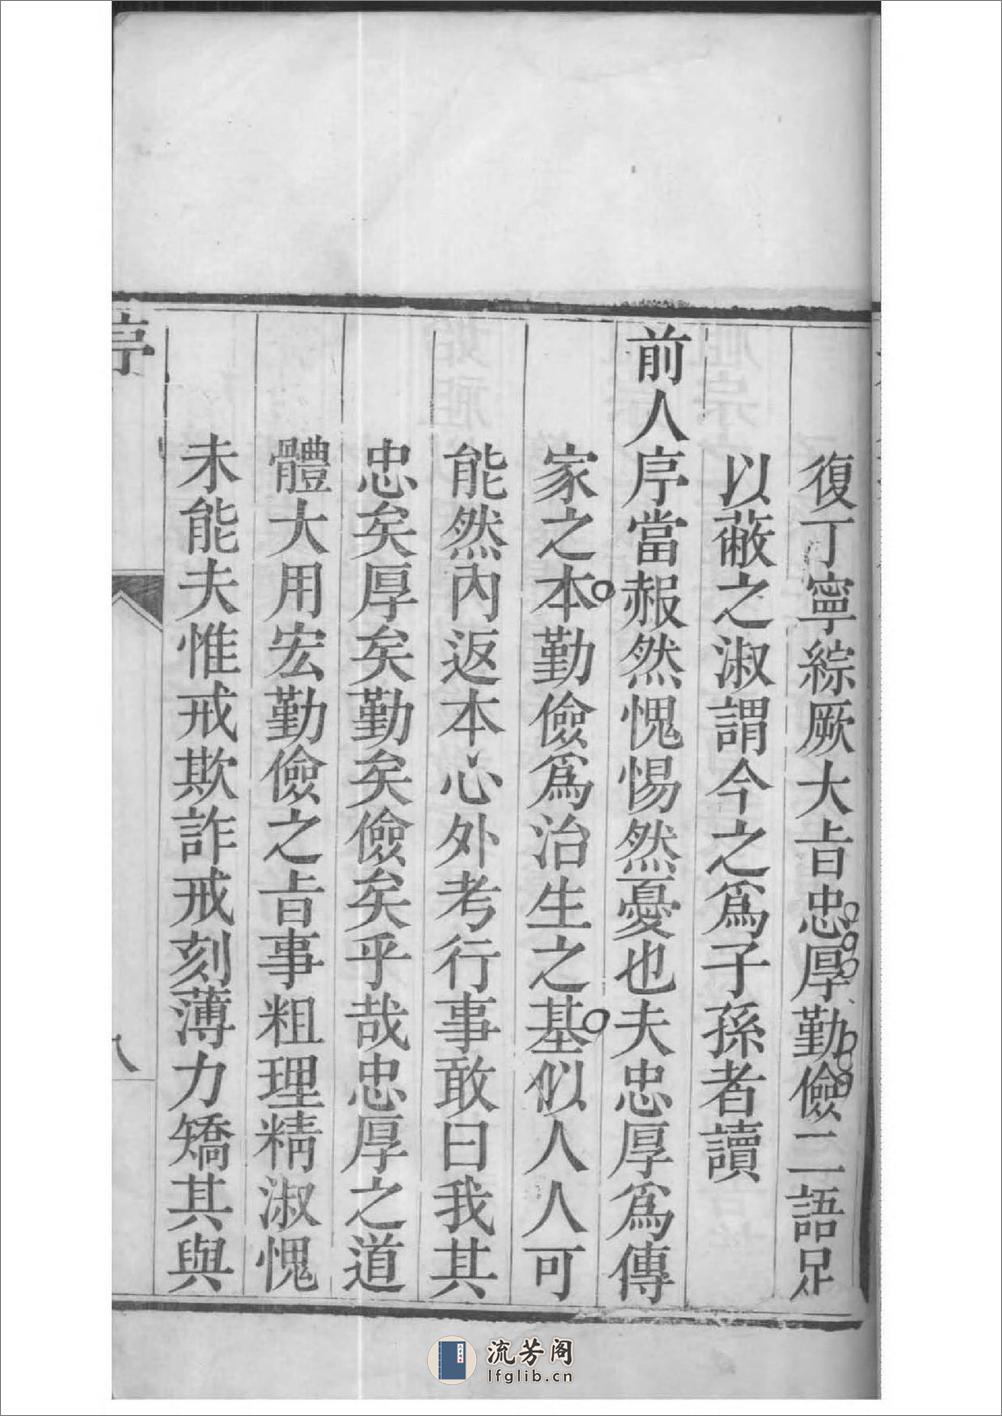 復丁寧綜厥大㫖忠厚勤儉二語足
以蔽之淑謂今之爲子孫者讀
前人序當赧然愧惕然憂也夫忠厚爲傳
家之本勤儉爲治生之基似人人可
能然內返本心外考行事敢曰我其
忠矣厚矣勤矣儉矣乎哉忠厚之道
體大用宏勤儉之㫖事粗理精淑愧
未能夫惟戒欺詐戒刻薄力矯其與
序
八
流芳阁
lfglib.cn